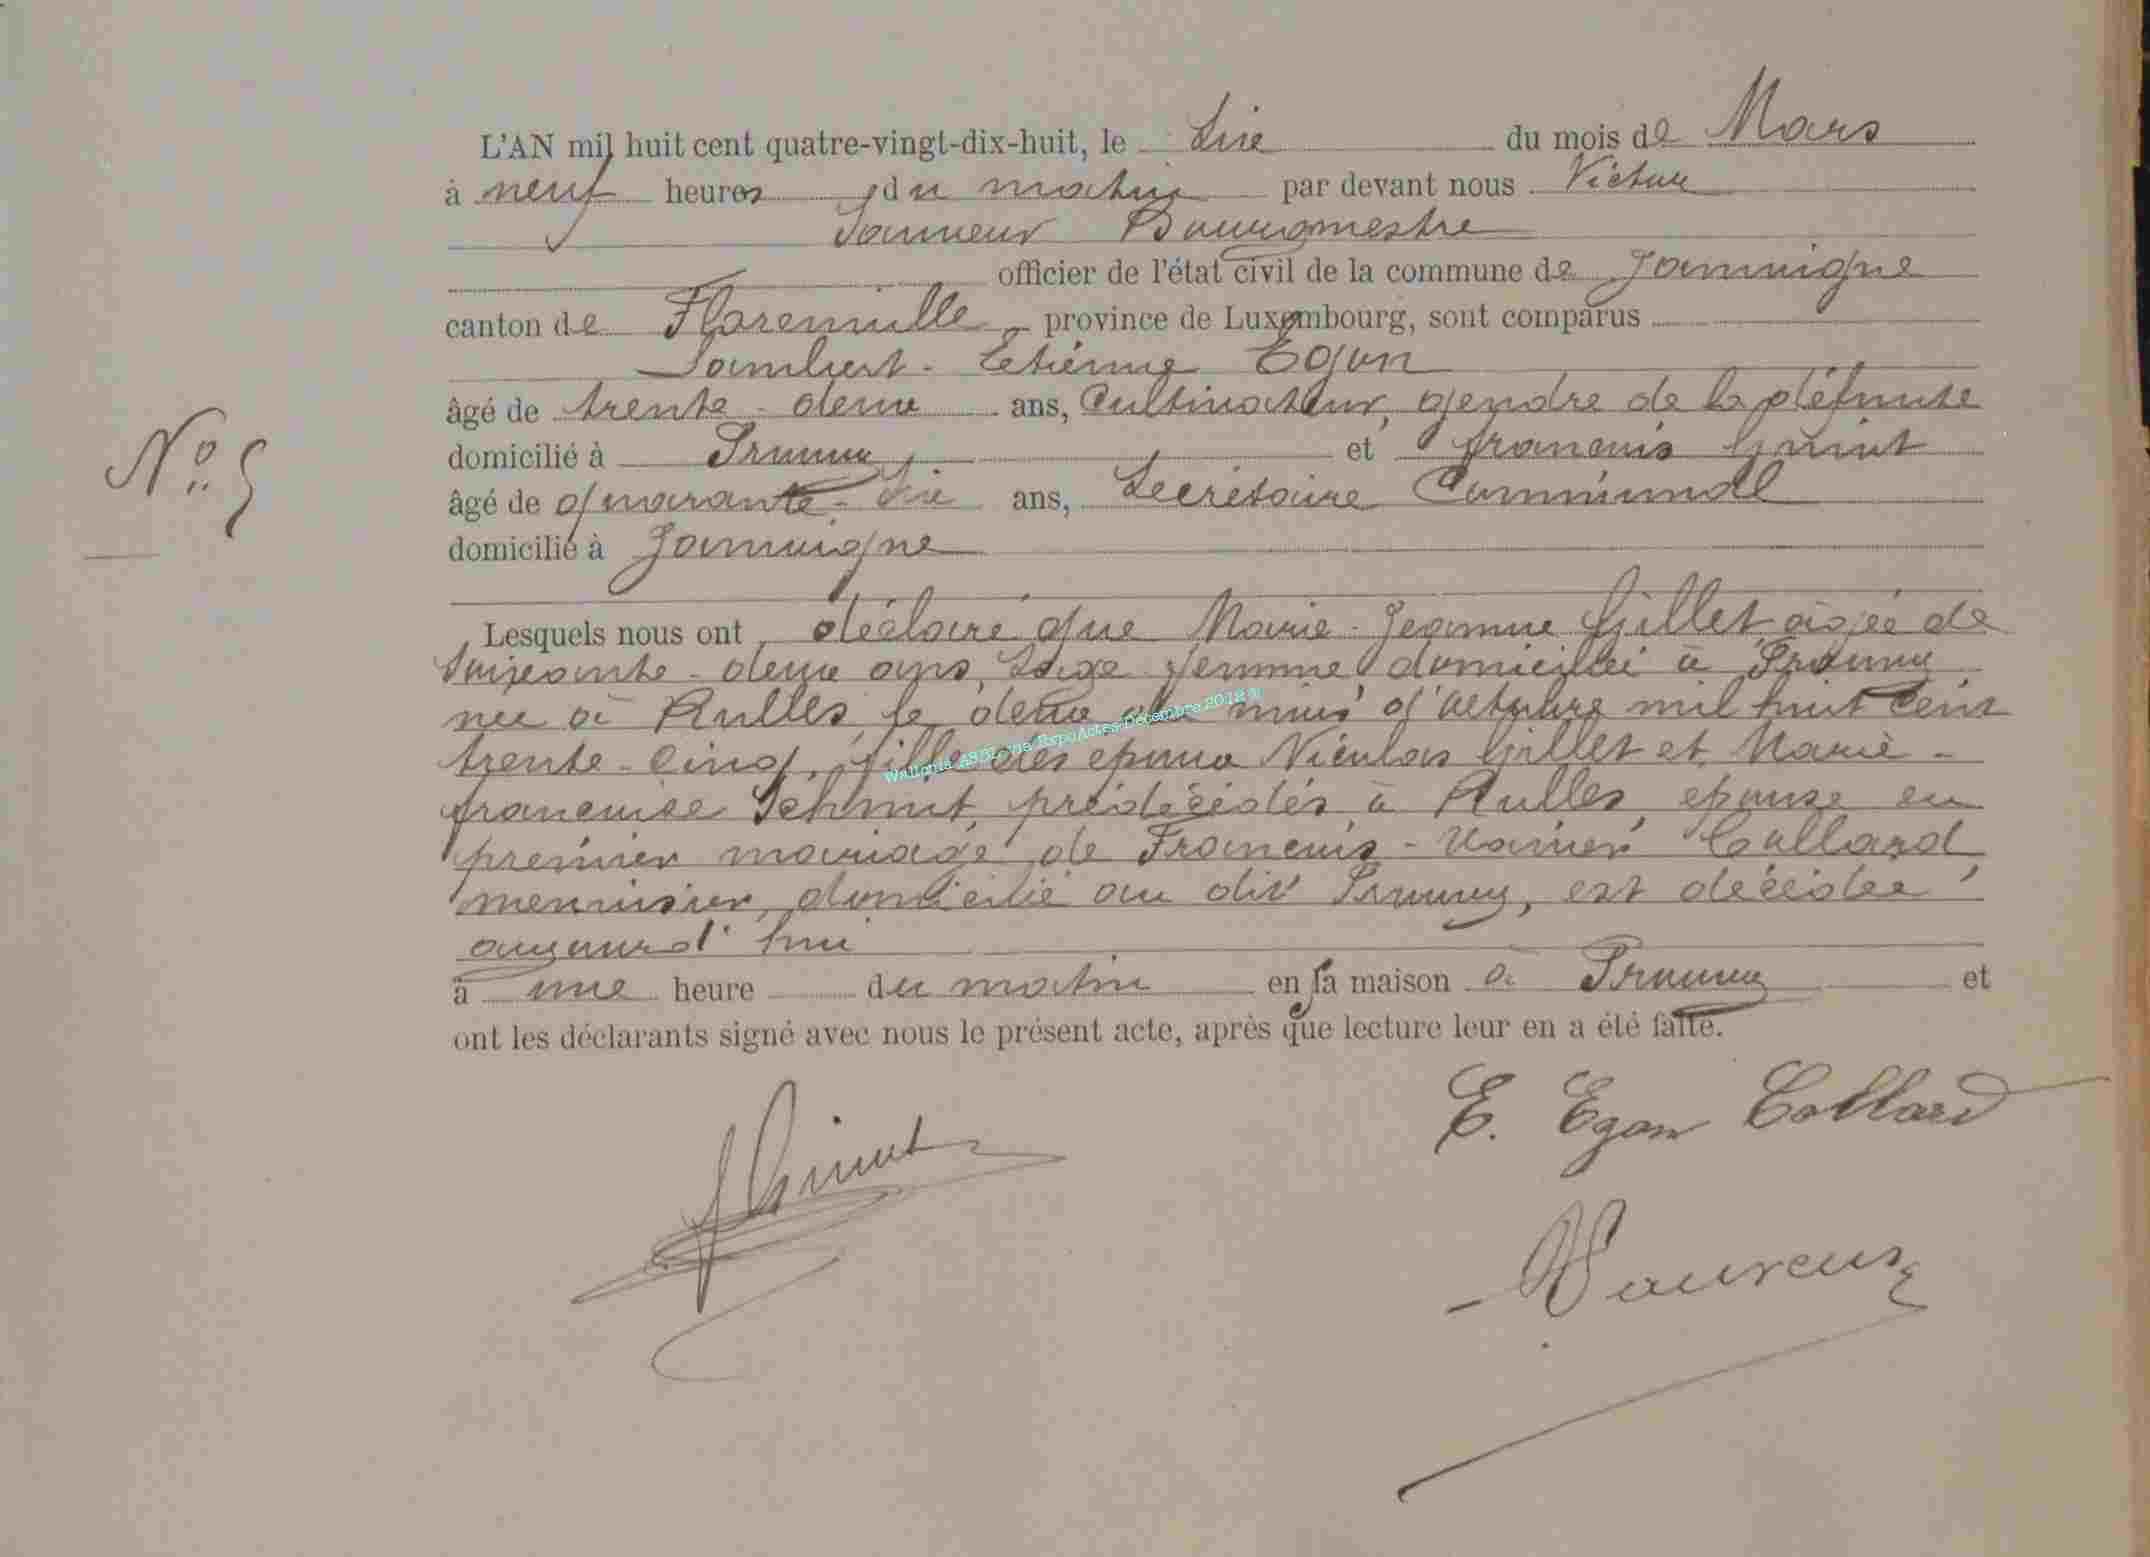 L'AN mil huit cent quatre-vingt-dix-huit, le Six du mois de Mars
à neuf heures du matin par devant nous Victor
Sauveur Bourgmestre
officier de l'état civil de la commune de Jamoigne
canton de Florenville province de Luxembourg, sont comparus
Lambert-Etienne Egon
âgé de trente-deux ans, Cultivateur, gendre de la défunte
domicilié à Prouvy et françois Guiot
N° 5
âgé de quarante-Six ans, Secrétaire Communal
domicilié à Jamoigne
Lesquels nous ont déclaré que Marie-Jeanne Gillet âgée de
Soixante-deux ans, Sage femme domiciliée à Prouvy
née à Rulles, le deux du mois d'octobre mil huit Cent
Wallonia ASBL ExpoActes Décembre 2012
trente-cinq, fille des epoux Nicolas Gillet et Marie-
françoise Schmit, prédécédés à Rulles, epouse en
premier mariage de François-Xavier Collard
menuisier, domicilié au dit Prouvy, est décédée
aujourd'hui
à une heure du matin en sa maison à Prouvy et
ont les déclarants signé avec nous le présent acte, après que lecture leur en a été faite.
E. Egon Collard
f Guiot
Sauveur